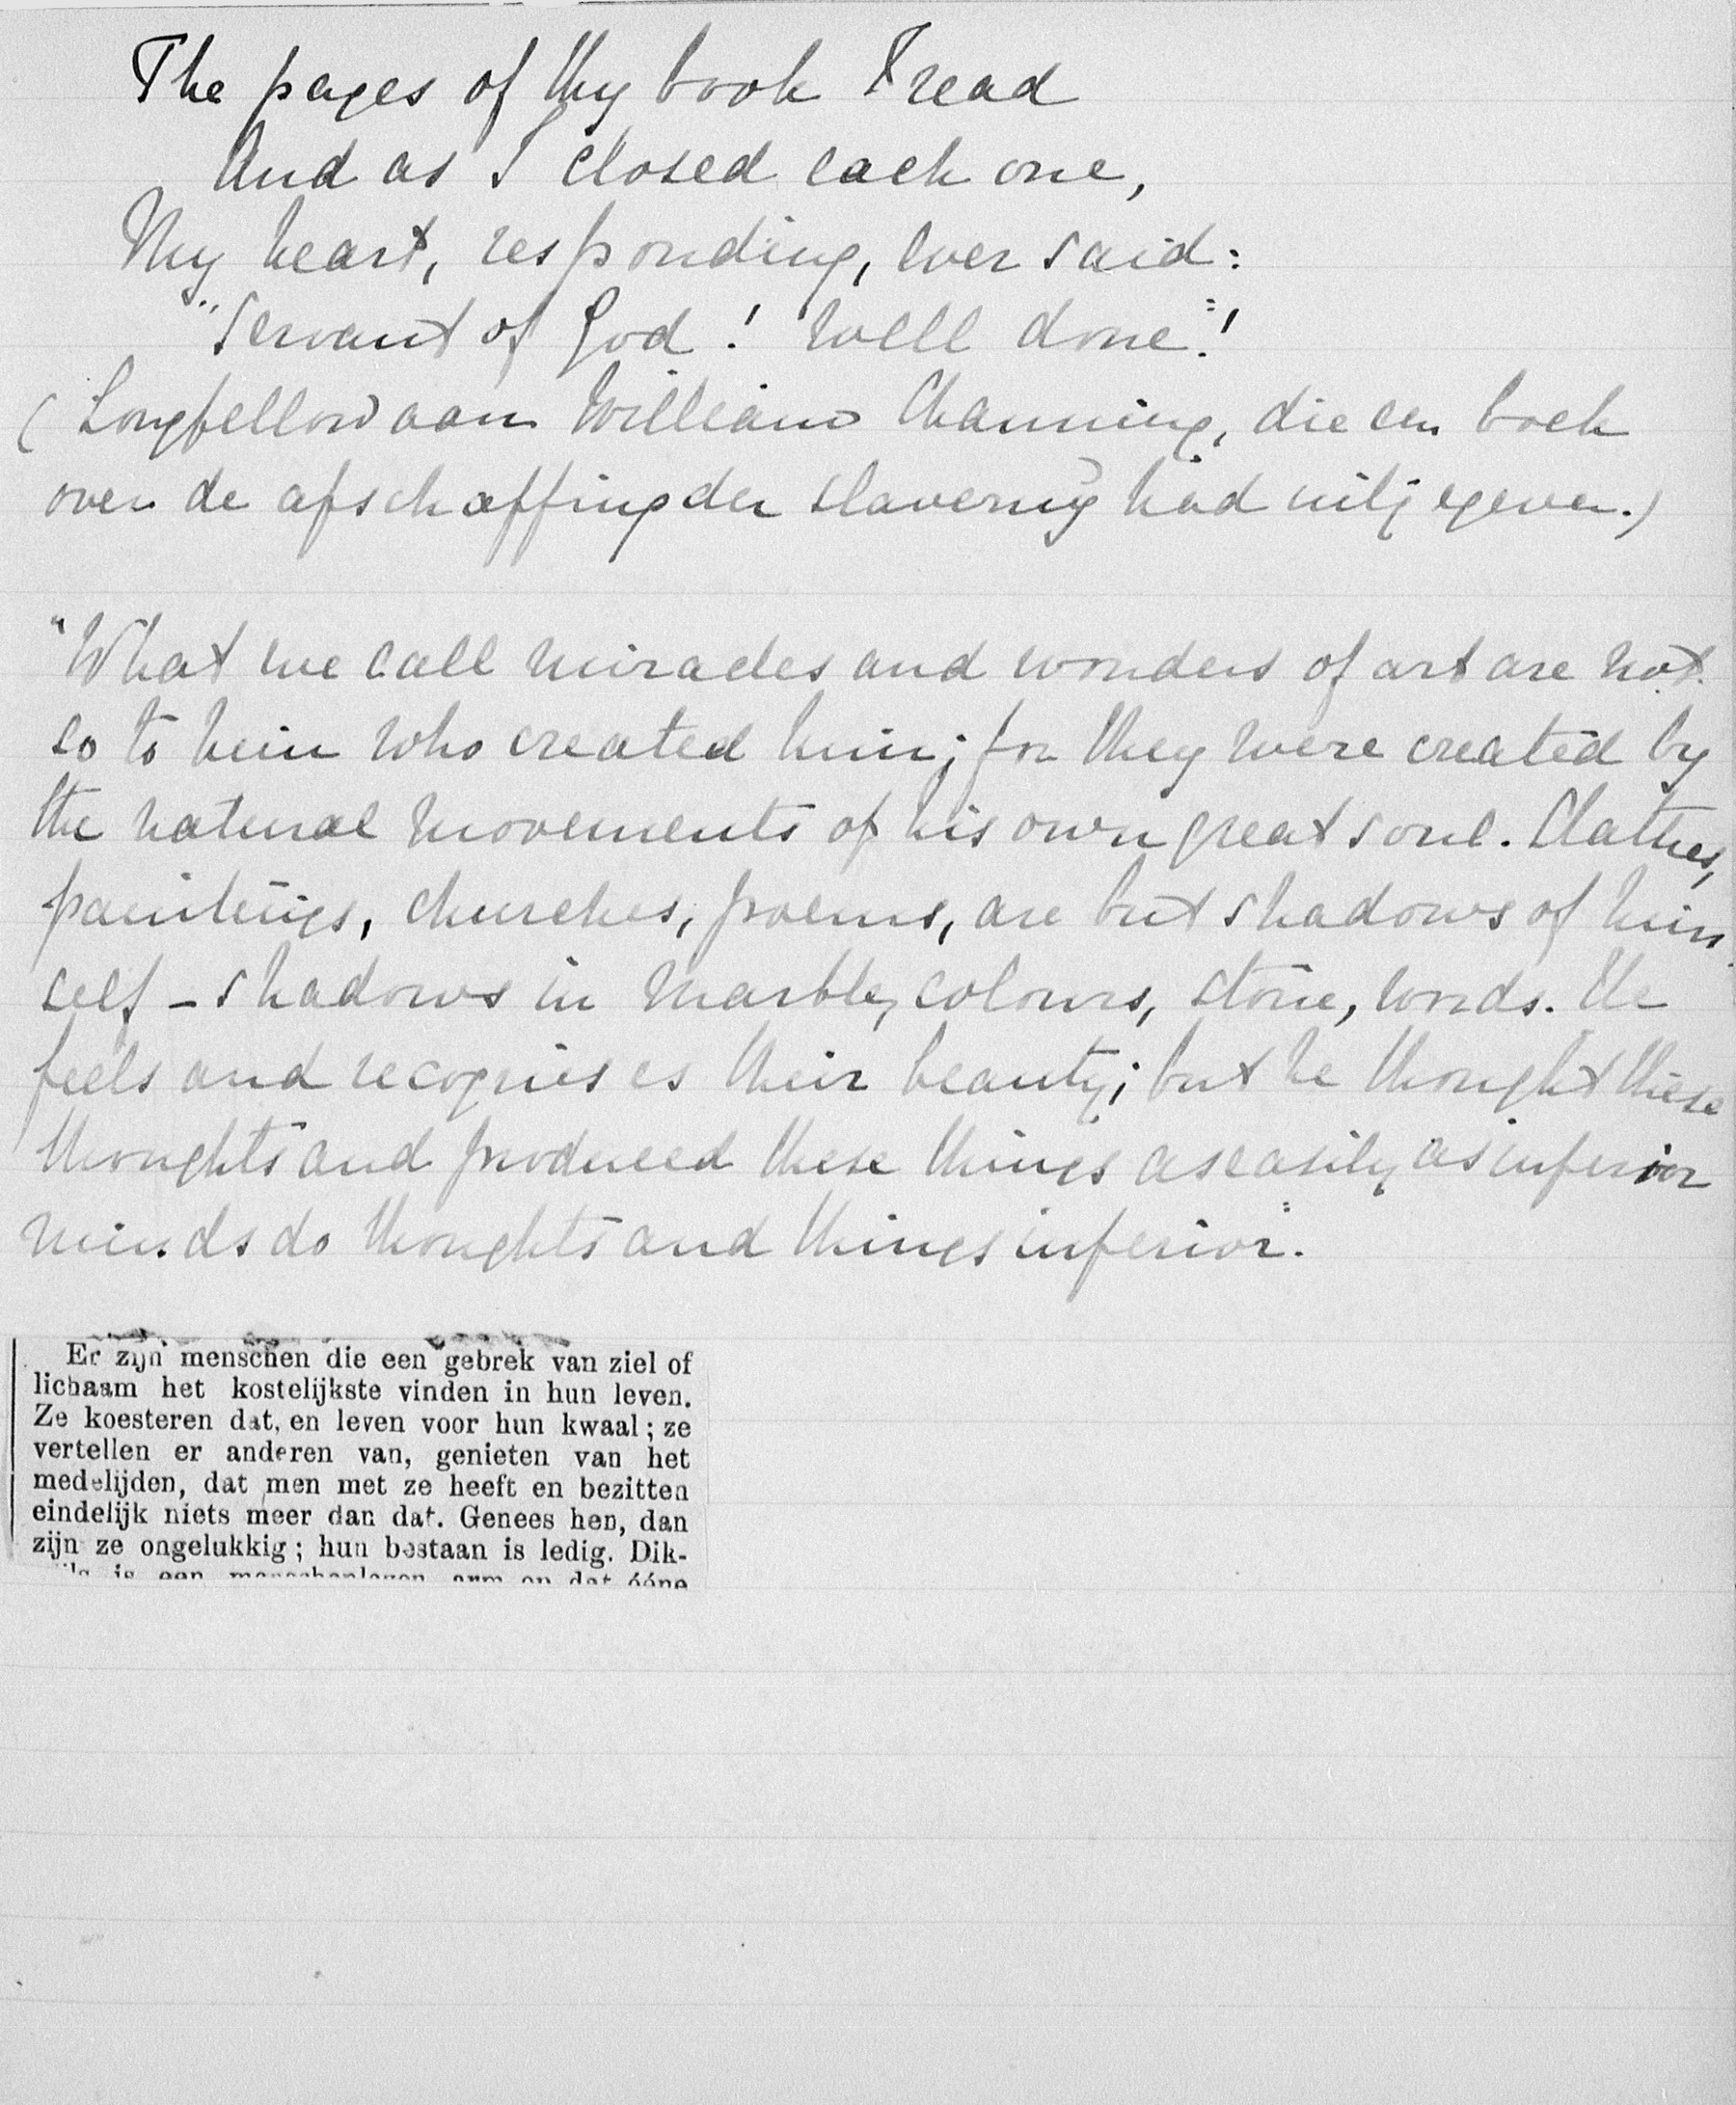 The pages of thy book I read
And as I closed each one,
My heart, responding, ever said:
"Servant of God! Well done"!
(Longfellow aan William Channing, die een boek
over de afschaffing der slavernij had uitgegeven.)
"What we call miracles and wonders of art are not
so to him who created him; for they were created by
the natural movements of his own great soul. Statues,
paintings, churches, poems, are but shadows of him
self – shadows in marble, colours, stone, words. He
feels and recognises their beauty; but he thought these
thoughts and produced these things as easily as inferior
minds do thoughts and things inferior."
Er zijn menschen die een gebrek van ziel of
lichaam het kostelijkste vinden in hun leven.
Ze koesteren dat, en leven voor hun kwaal; ze
vertellen er anderen van, genieten van het
medelijden, dat men met ze heeft en bezitten
eindelijk niets meer dan dat. Genees hen, dan
zijn ze ongelukkig; hun bestaan is ledig. Dik-
is een menschenleven arm en dat ééne